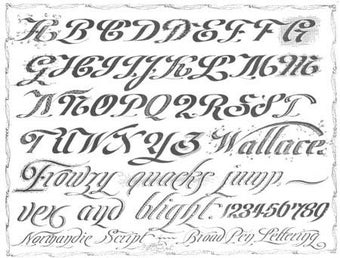 A B C D D E F F G
G H I I J K L M M
N N O P Q 2 R S S T
T U V W X Y Z Wallace.
Frowzy quacks jump ~
vex and blight. 1234567890
Normandie Script ~ Broad Pen Lettering